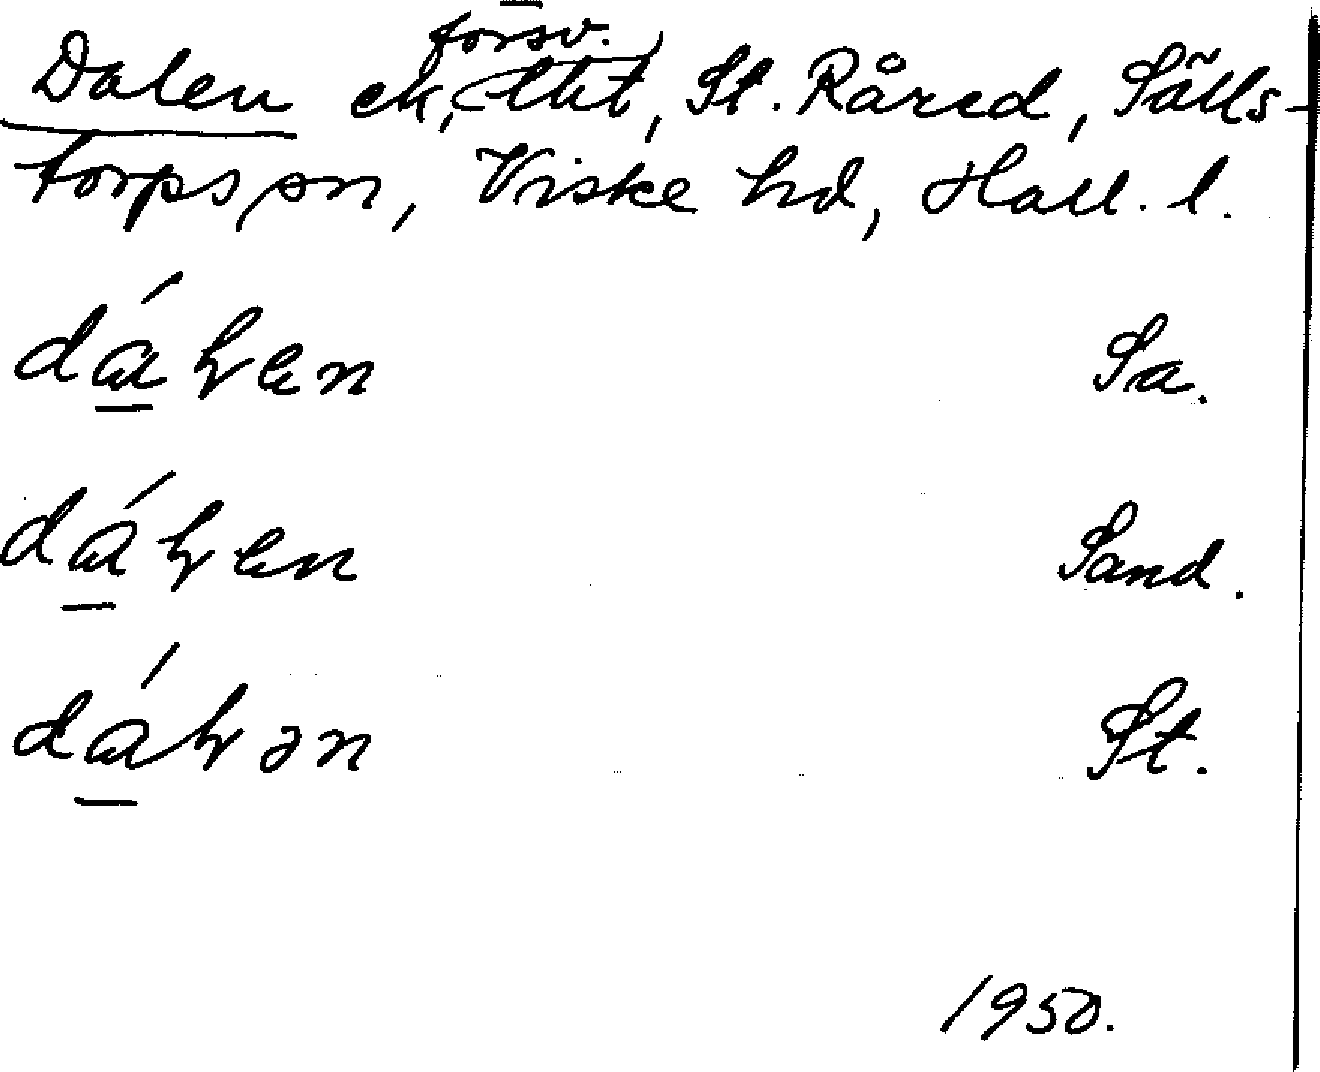 försv.
Dalen ek, (tht), St. Råred, Sälls-
torps sn, Viske hd, Hall. l.
dáɽen Sa.
dáɽen Sand.
dáɽən St.
1950.